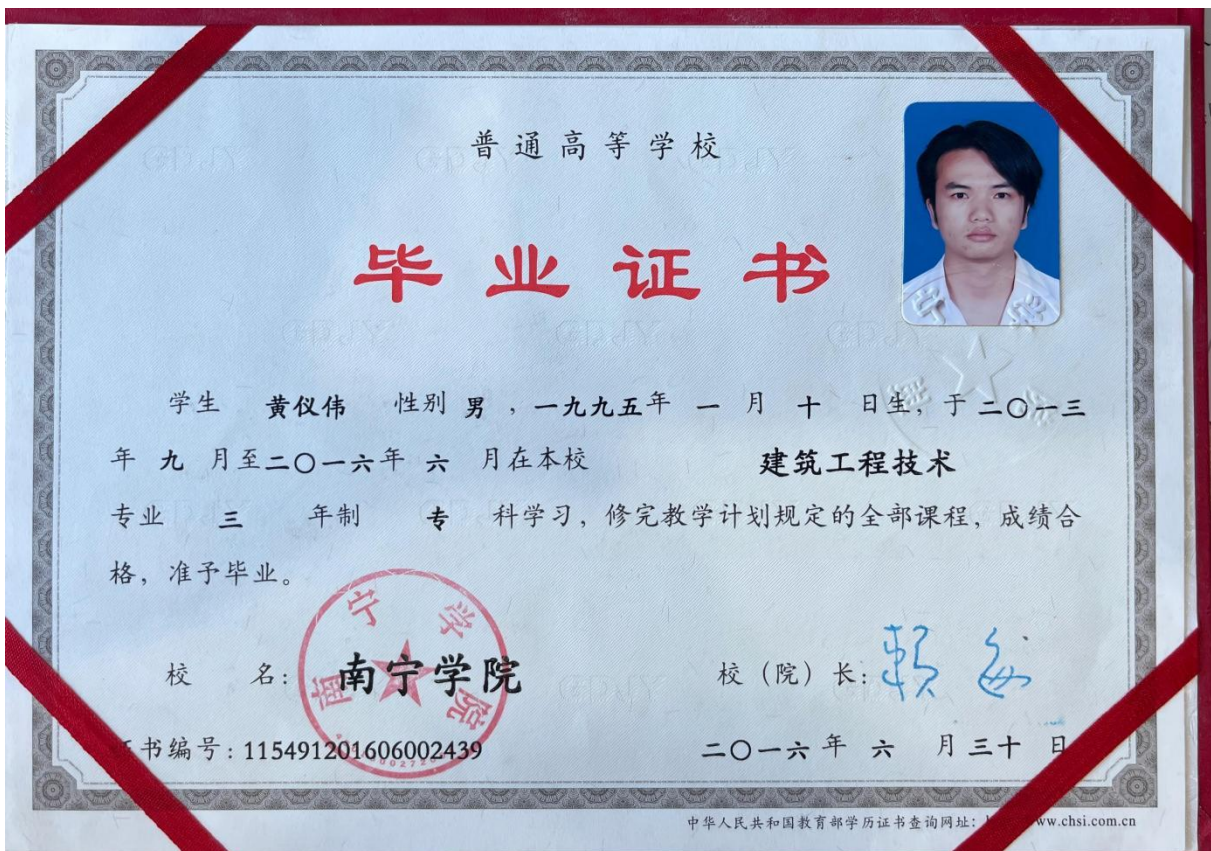 普通高等学校
毕业证书
学生 黄仪伟 性别 男 ，一九九五年 一 月 十 日生，于二〇一三
年 九 月至二〇一六年 六 月在本校 建筑工程技术
专业 三 年制 专 科学习，修完教学计划规定的全部课程，成绩合
格，准予毕业。
校 名：南宁学院
南宁学院
校（院）长：
书编号：115491201606002439
二〇一六年 六 月三十 日
中华人民共和国教育部学历证书查询网址： ww.chsi.com.cn